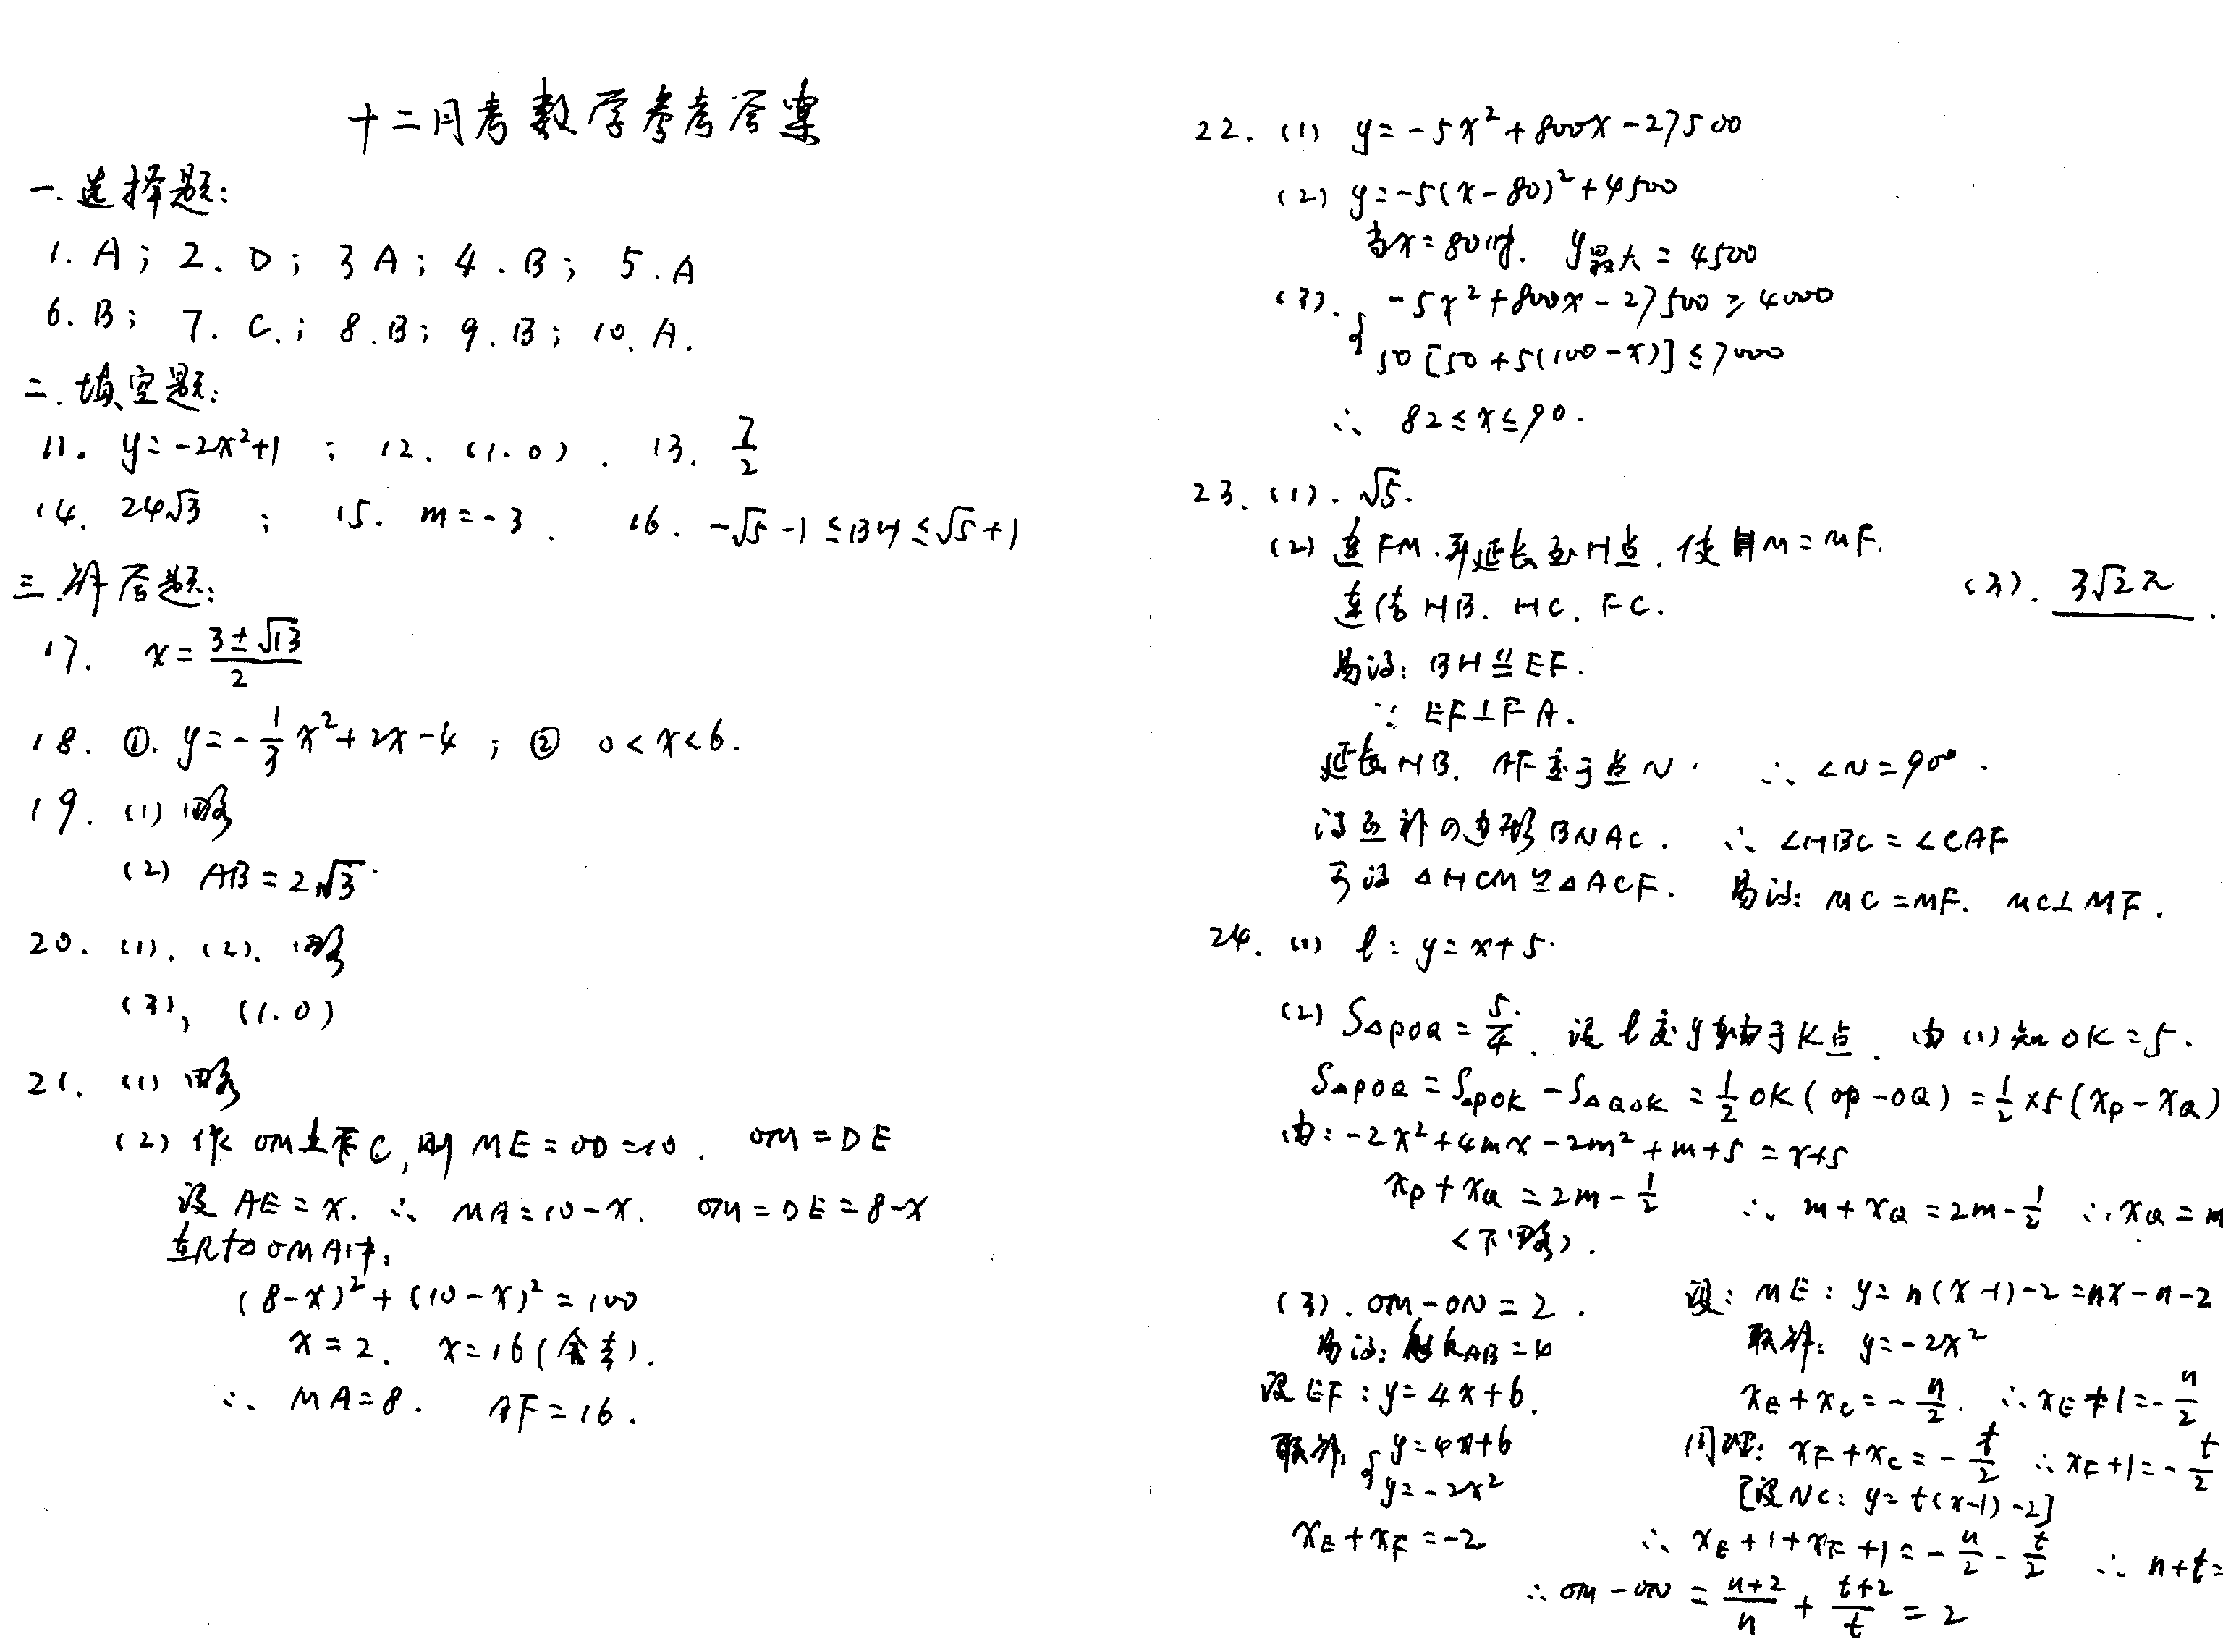 十二月考数学参考答案
一.选择题:
1. A; 2. D; 3 A; 4. B; 5. A
6. B; 7. C.; 8. B; 9. B; 10. A.
二.填空题:
11. y=-2x²+1 ; 12. (1.0) . 13. 7/2
14. 24√3 ; 15. m=-3 . 16. -√5-1≤BM≤√5+1
三.解答题:
17. x=(3±√13)/2
18. ①. y=-1/3x²+2x-4 ; ② 0<x<6.
19. (1) 略
(2) AB=2√3.
20. (1). (2). 略
(3), (1.0)
21. (1) 略
(2) 作 OM⊥于C,则 ME=OD=10. OM=DE
设 AE=x. ∴ MA=10-x. OM=DE=8-x
在Rt△OMA中,
(8-x)²+(10-x)²=100
x=2. x=16(舍去).
∴ MA=8. AF=16.
22. (1) y=-5x²+800x-27500
(2) y=-5(x-80)²+4500
当x=80时. y最大=4500
(3). { -5x²+800x-27500≥4000
50[50+5(100-x)]≤7000
∴ 82≤x≤90.
23. (1). √5.
(2) 连FM.并延长至H点.使HM=MF.
连结HB. HC. FC.
(3). 3√2π.
易证: BH∥=EF.
∵ EF⊥FA.
延长HB. AF交于点N. ∴ ∠N=90°.
证互补四边形BNAC. ∴ ∠HBC=∠CAF
可证 △HCM≌△ACF. 易证: MC=MF. MC⊥MF.
24. (1) l: y=x+5.
(2) S△POQ=5/4. 设l交y轴于K点. 由(1)知OK=5.
S△POQ=S△POK-S△QOK=1/2OK(OP-OQ)=1/2×5(xP-xQ)
由:-2x²+4mx-2m²+m+5=x+5
xP+xQ=2m-1/2 ∴ m+xQ=2m-1/2 ∴ xQ=m
<下略>.
(3). OM-ON=2.
易证: kAB=4
设EF: y=4x+b.
联解, { y=4x+b
y=-2x²
xE+xF=-2
设: ME: y=n(x-1)-2=nx-n-2
联解: y=-2x²
xE+xC=-n/2. ∴ xE+1=-n/2
同理: xF+xC=-t/2 ∴ xF+1=-t/2
[设NC: y=t(x-1)-2]
∴ xE+1+xF+1=-n/2-t/2 ∴ n+t=
∴ OM-ON=(n+2)/n+(t+2)/t=2